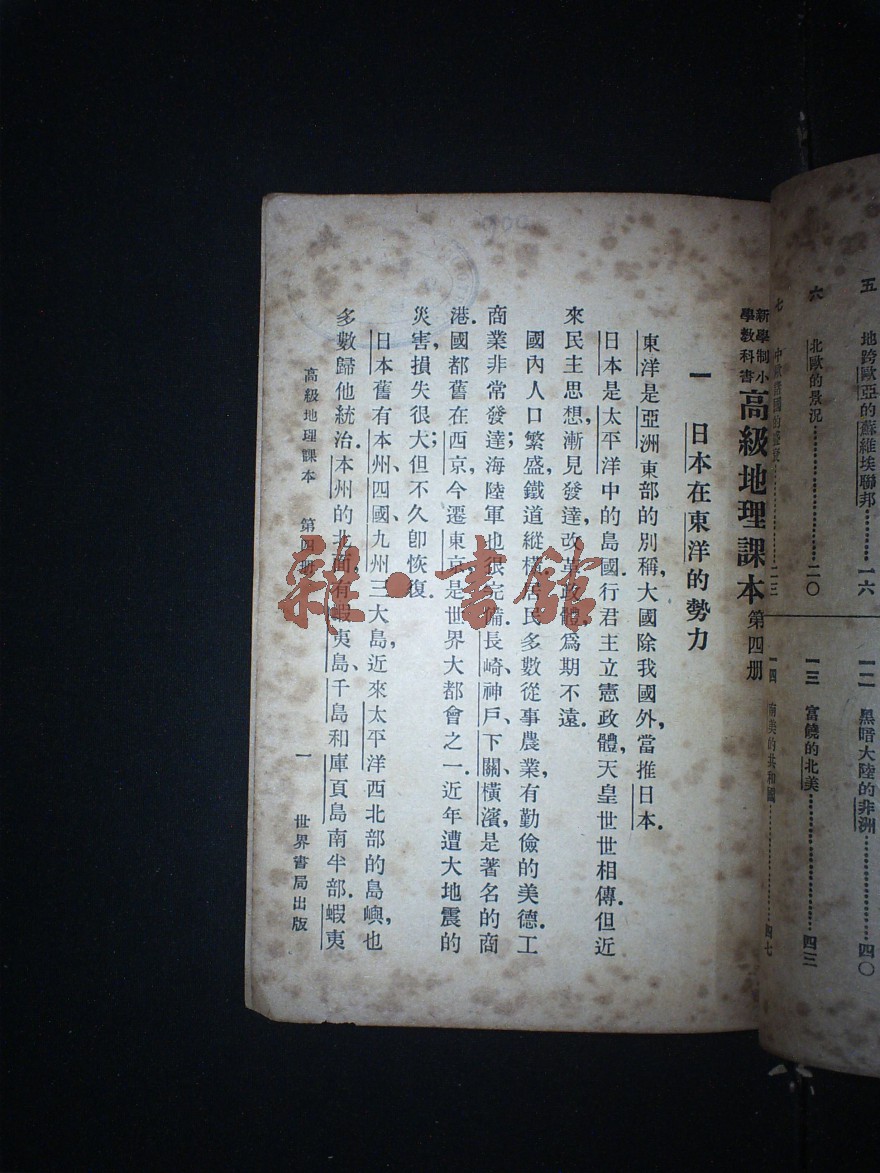 五 地跨歐亞的蘇維埃聯邦⋯⋯⋯一六
六 北歐的景況⋯⋯⋯⋯⋯⋯二〇
七 中歐⋯⋯二三
一二 黑暗大陸的非洲⋯⋯⋯⋯四〇
一三 富饒的北美⋯⋯⋯⋯⋯四三
一四 南美的共和國⋯⋯⋯⋯⋯四七
新學制小學教科書 高級地理課本 第四册
一 日本在東洋的勢力
東洋是亞洲東部的別稱,大國除我國外,當推日本.
日本是太平洋中的島國.行君主立憲政體,天皇世世相傳.但近
來民主思想,漸見發達,改革政體,爲期不遠.
國內人口繁盛,鐵道縱橫.居民多數從事農業,有勤儉的美德.工
商業非常發達;海陸軍也很完備.長崎、神戶、下關、橫濱,是著名的商
港.國都舊在西京,今遷東京,是世界大都會之一.近年遭大地震的
災害,損失很大;但不久卽恢復.
日本舊有本州、四國、九州三大島,近來太平洋西北部的島嶼,也
多數歸他統治.本州的北面,有蝦夷島、千島和庫頁島南半部.蝦夷
高級地理課本 第四册 一 世界書局出版
雜·書館